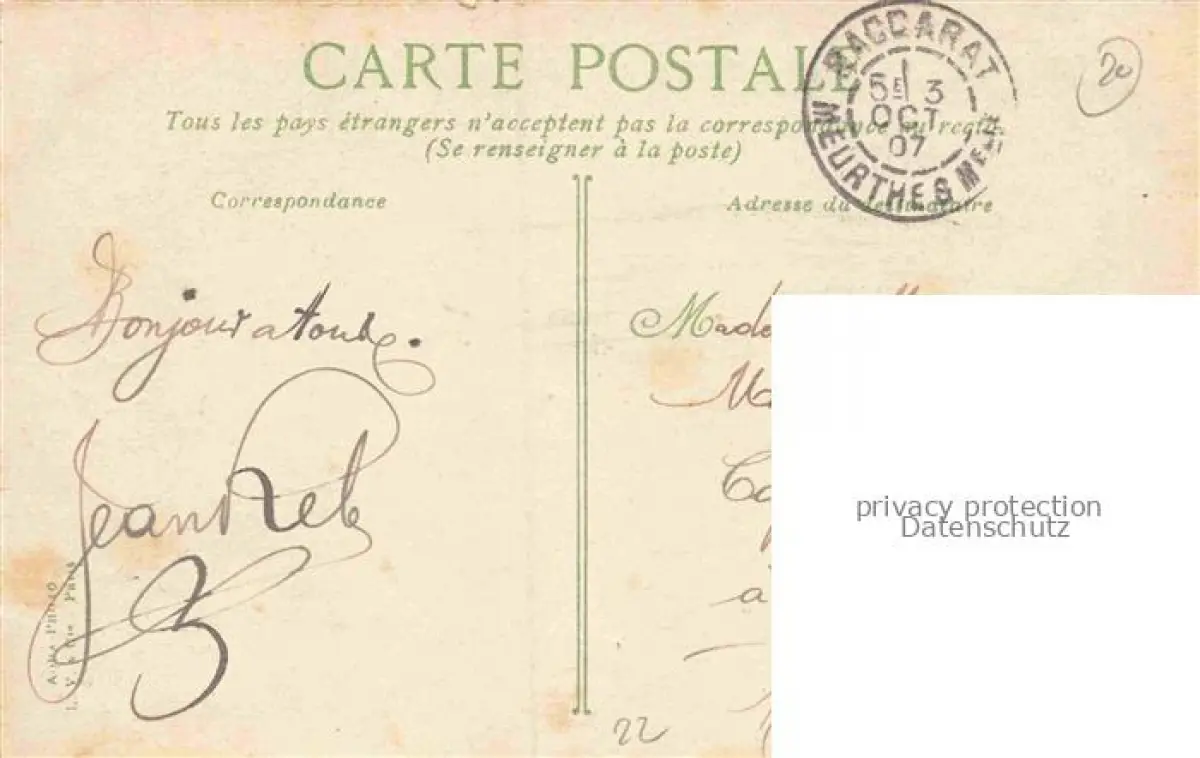 CARTE POSTALE
Tous les pays étrangers n'acceptent pas la correspondance au recto.
(Se renseigner à la poste)
BACCARAT
5E 3
OCT
07
MEURTHE & Melle
20
Correspondance
Adresse du destinataire
Bonjour a tous.
Jean
à
22
privacy protection
Datenschutz
Paris